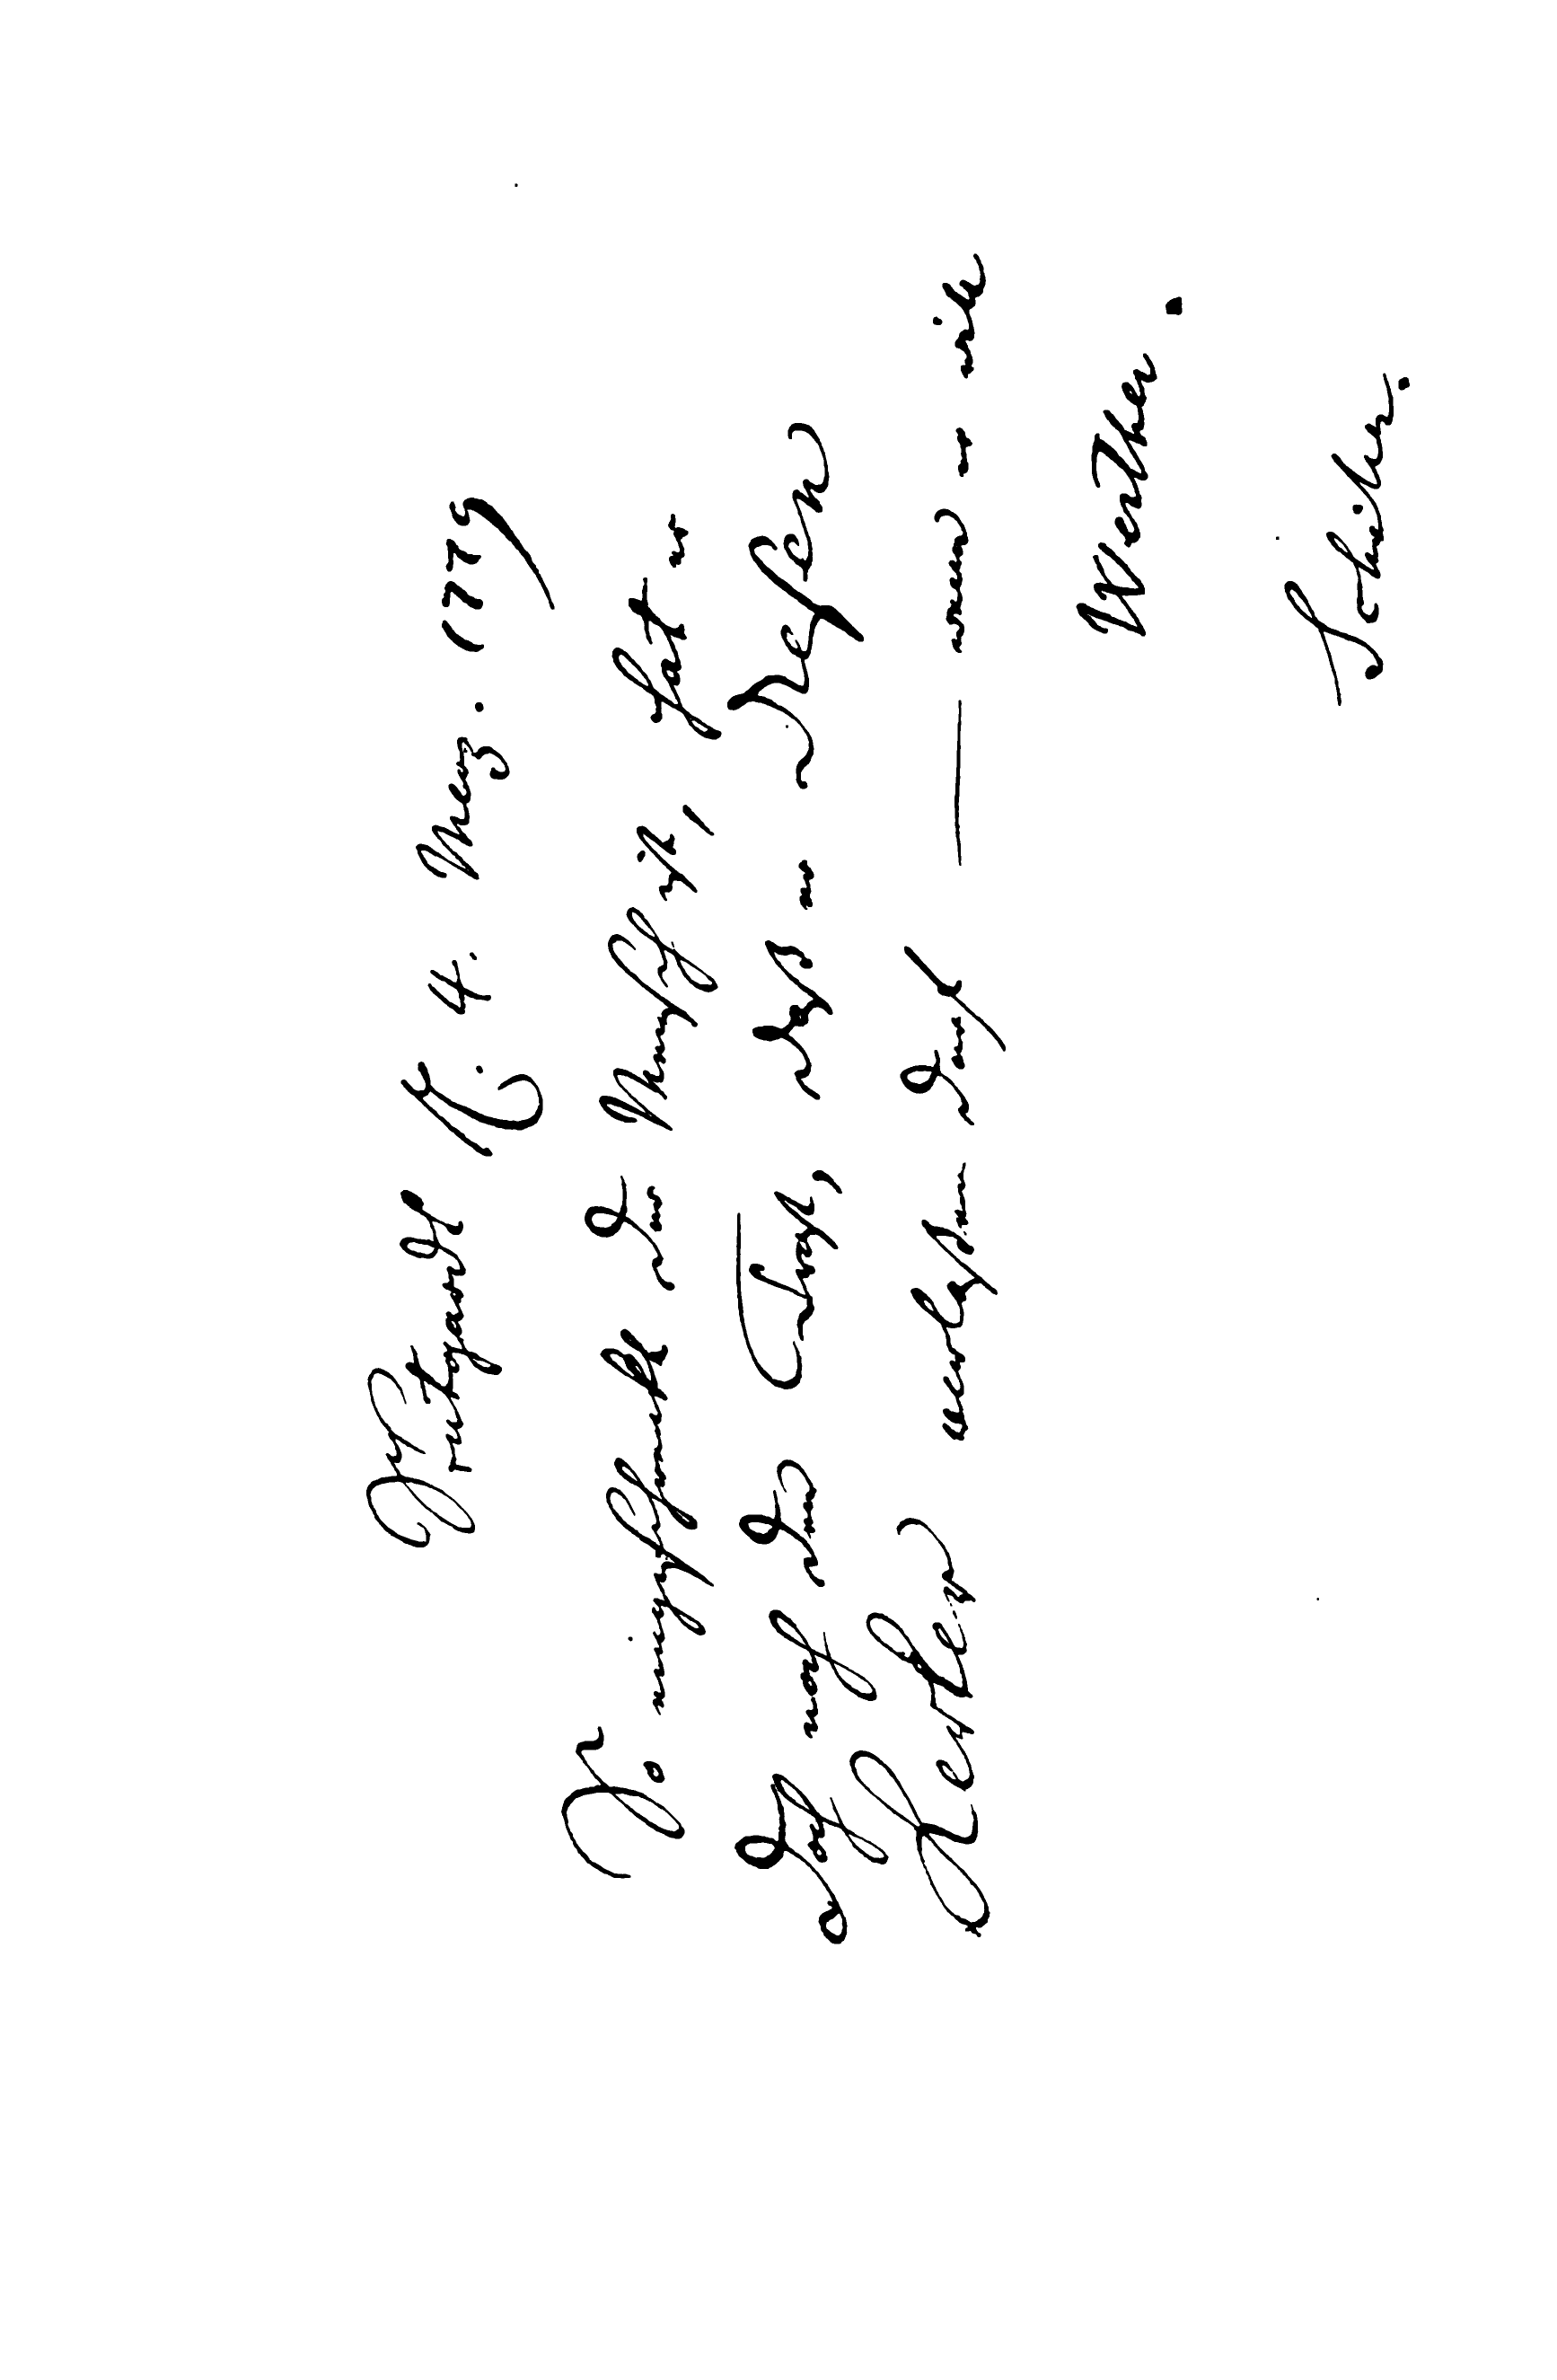 Stuttgardt d. 4. Merz. 1779
So eingeschränkt der Mensch ist, hat er
doch noch den Trost, daß er diesen
Kerker verlassen darf — wann er will
Werther.